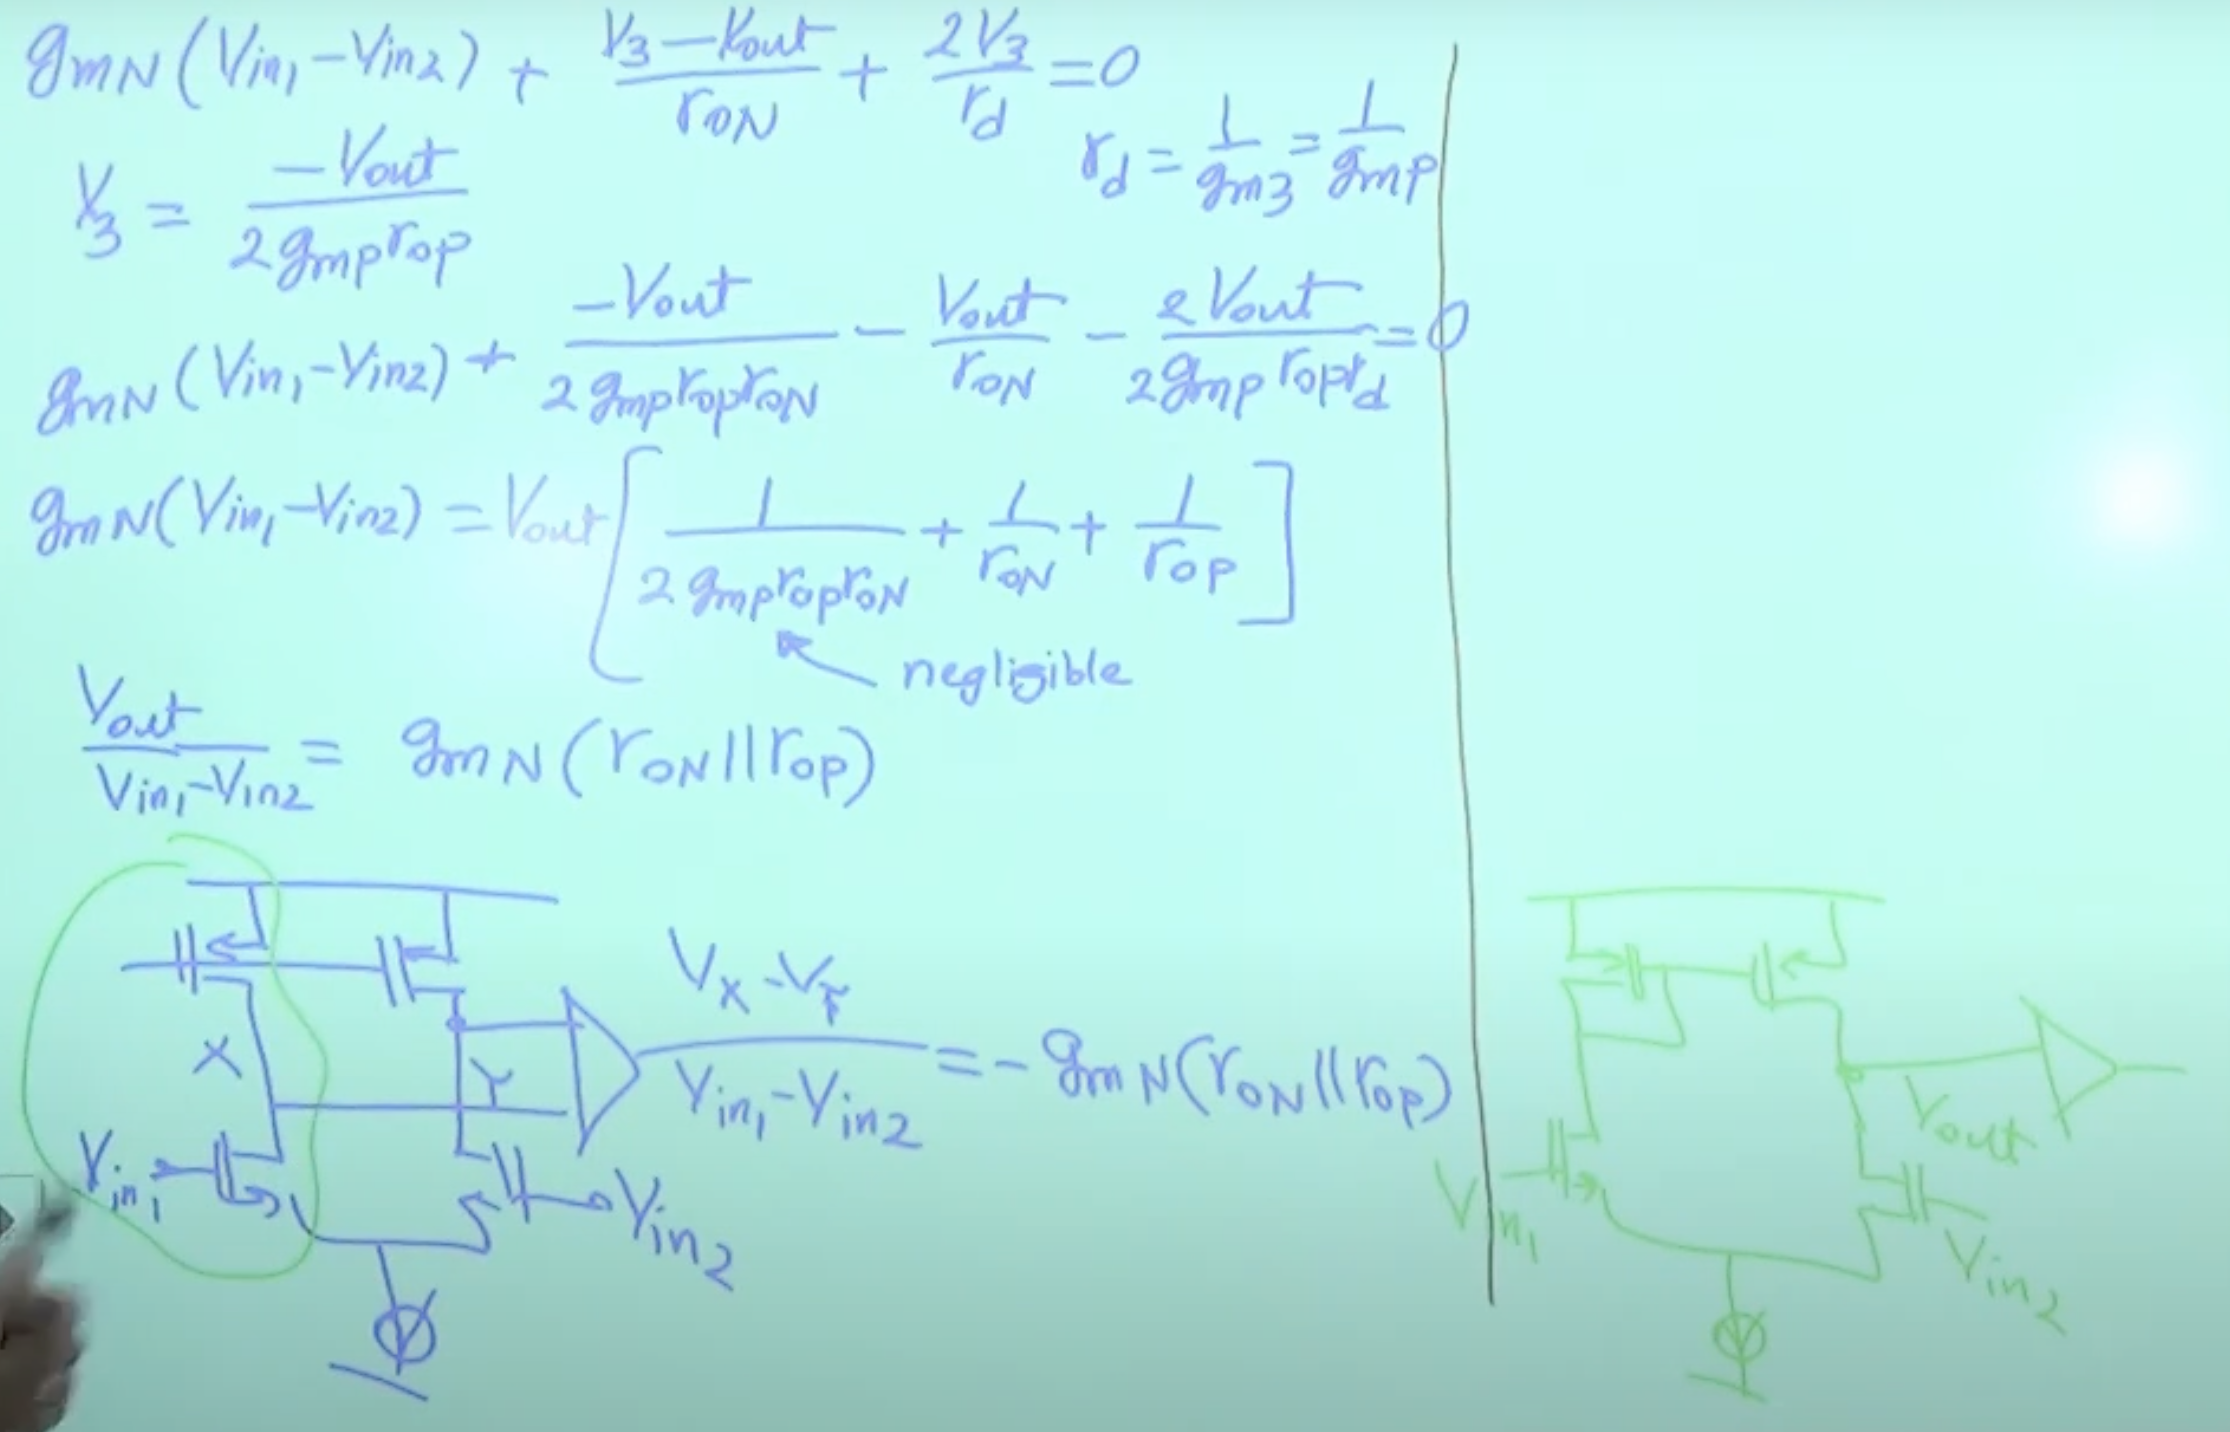 gmN (Vin1 - Vin2) + (V3 - Vout)/roN + 2V3/rd = 0
rd = 1/gm3 = 1/gmp
V3 = -Vout/(2 gmp rop)
gmN (Vin1 - Vin2) + -Vout/(2 gmp rop roN) - Vout/roN - 2Vout/(2 gmp rop rd) = 0
gmN (Vin1 - Vin2) = Vout [ 1/(2 gmp rop roN) + 1/roN + 1/rop ]
negligible
Vout/(Vin1 - Vin2) = gmN (roN || rop)
X
Y
(VX - VY)/(Vin1 - Vin2) = - gmN (roN || rop)
Vin1
Vin2
Vout
Vin1
Vin2